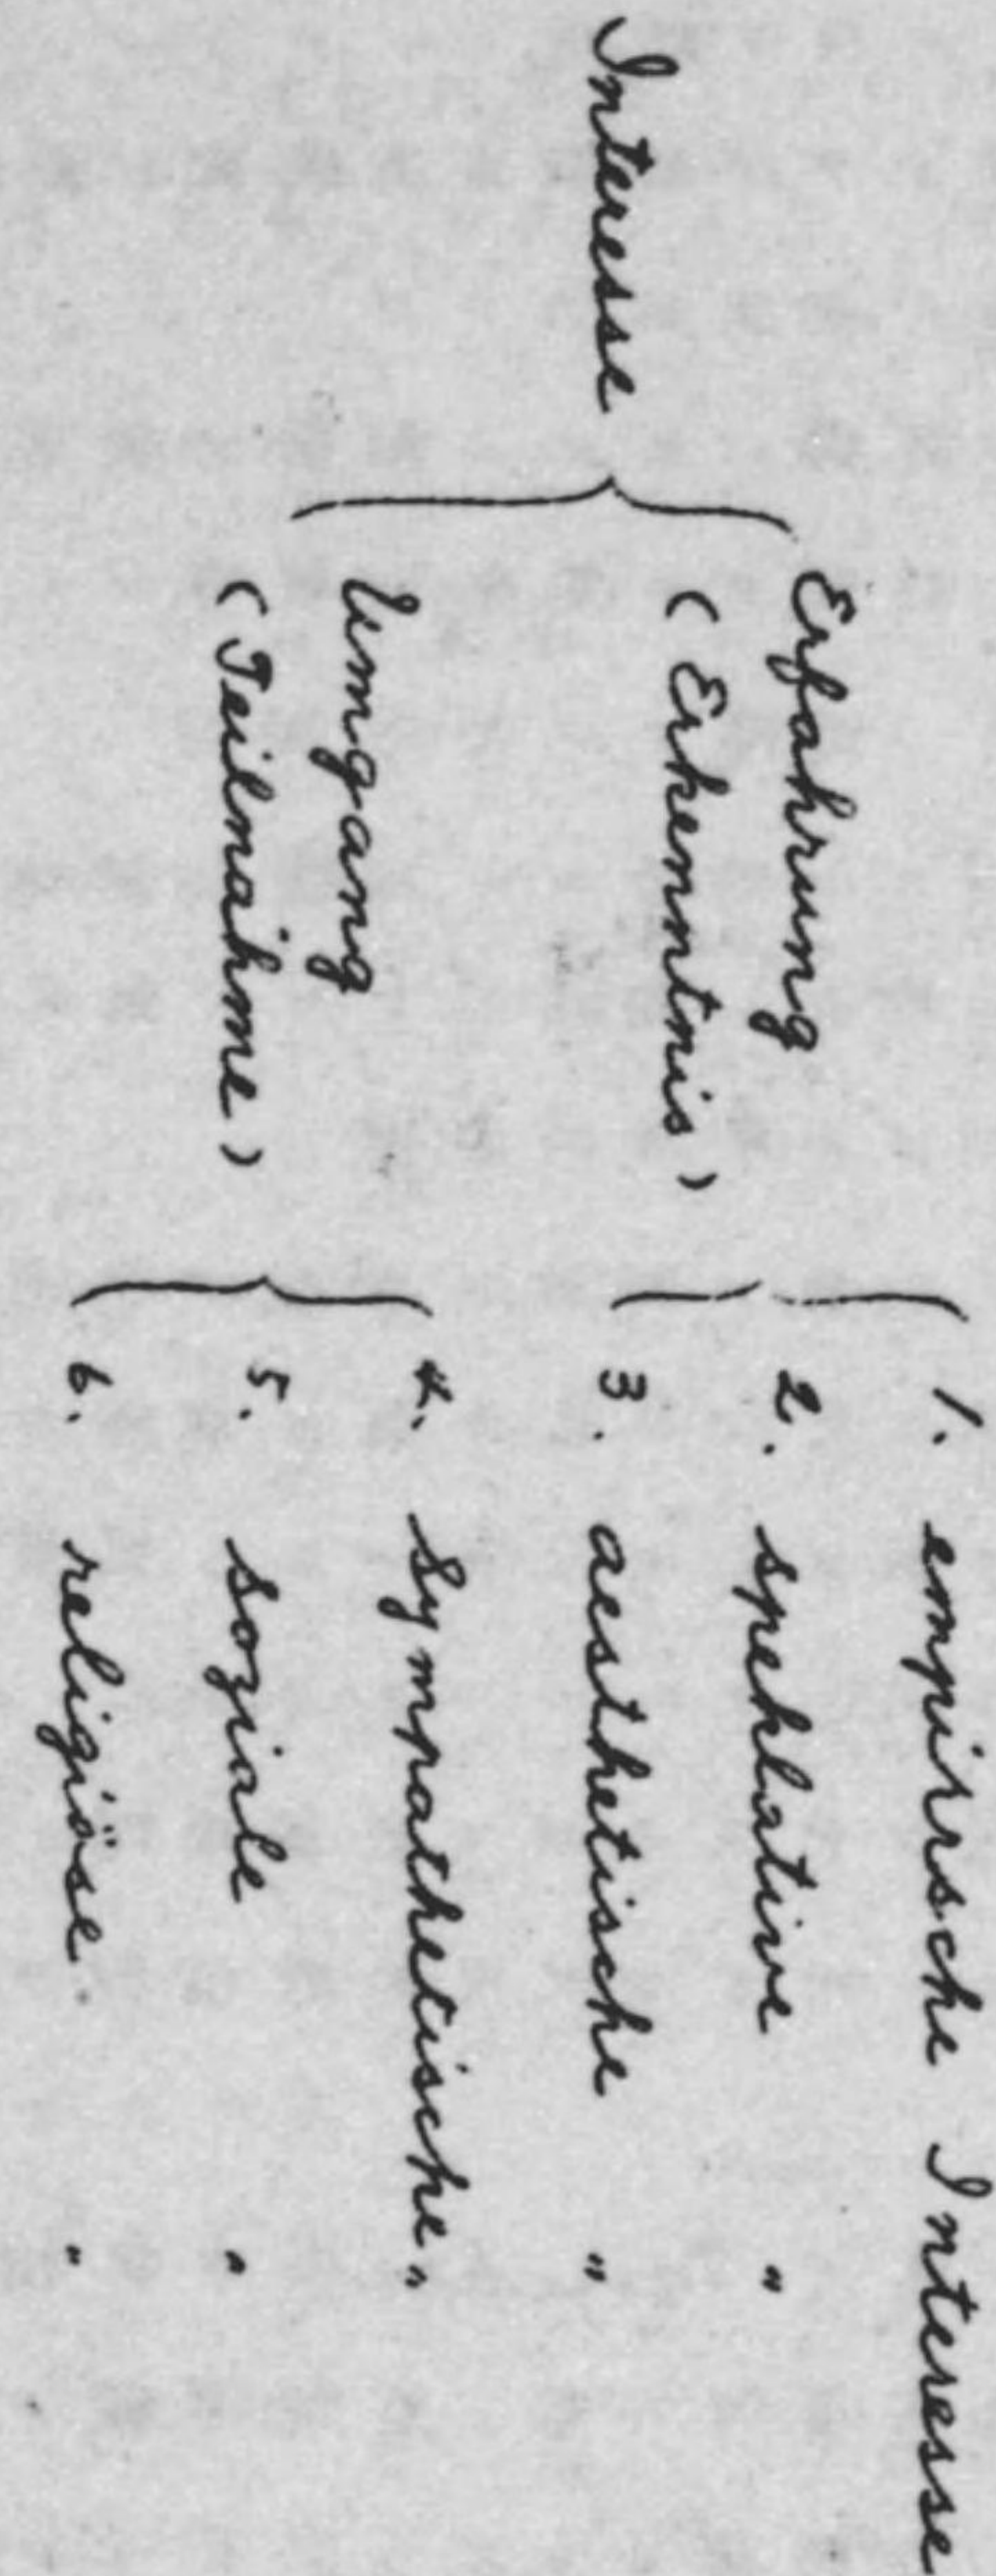 Interesse
Erfahrung
(Erkenntnis)
Umgang
(Teilnahme)
1. empirische Interesse
2. speklative "
3. aesthetische "
4. Sympathetische "
5. soziale "
6. religiöse "